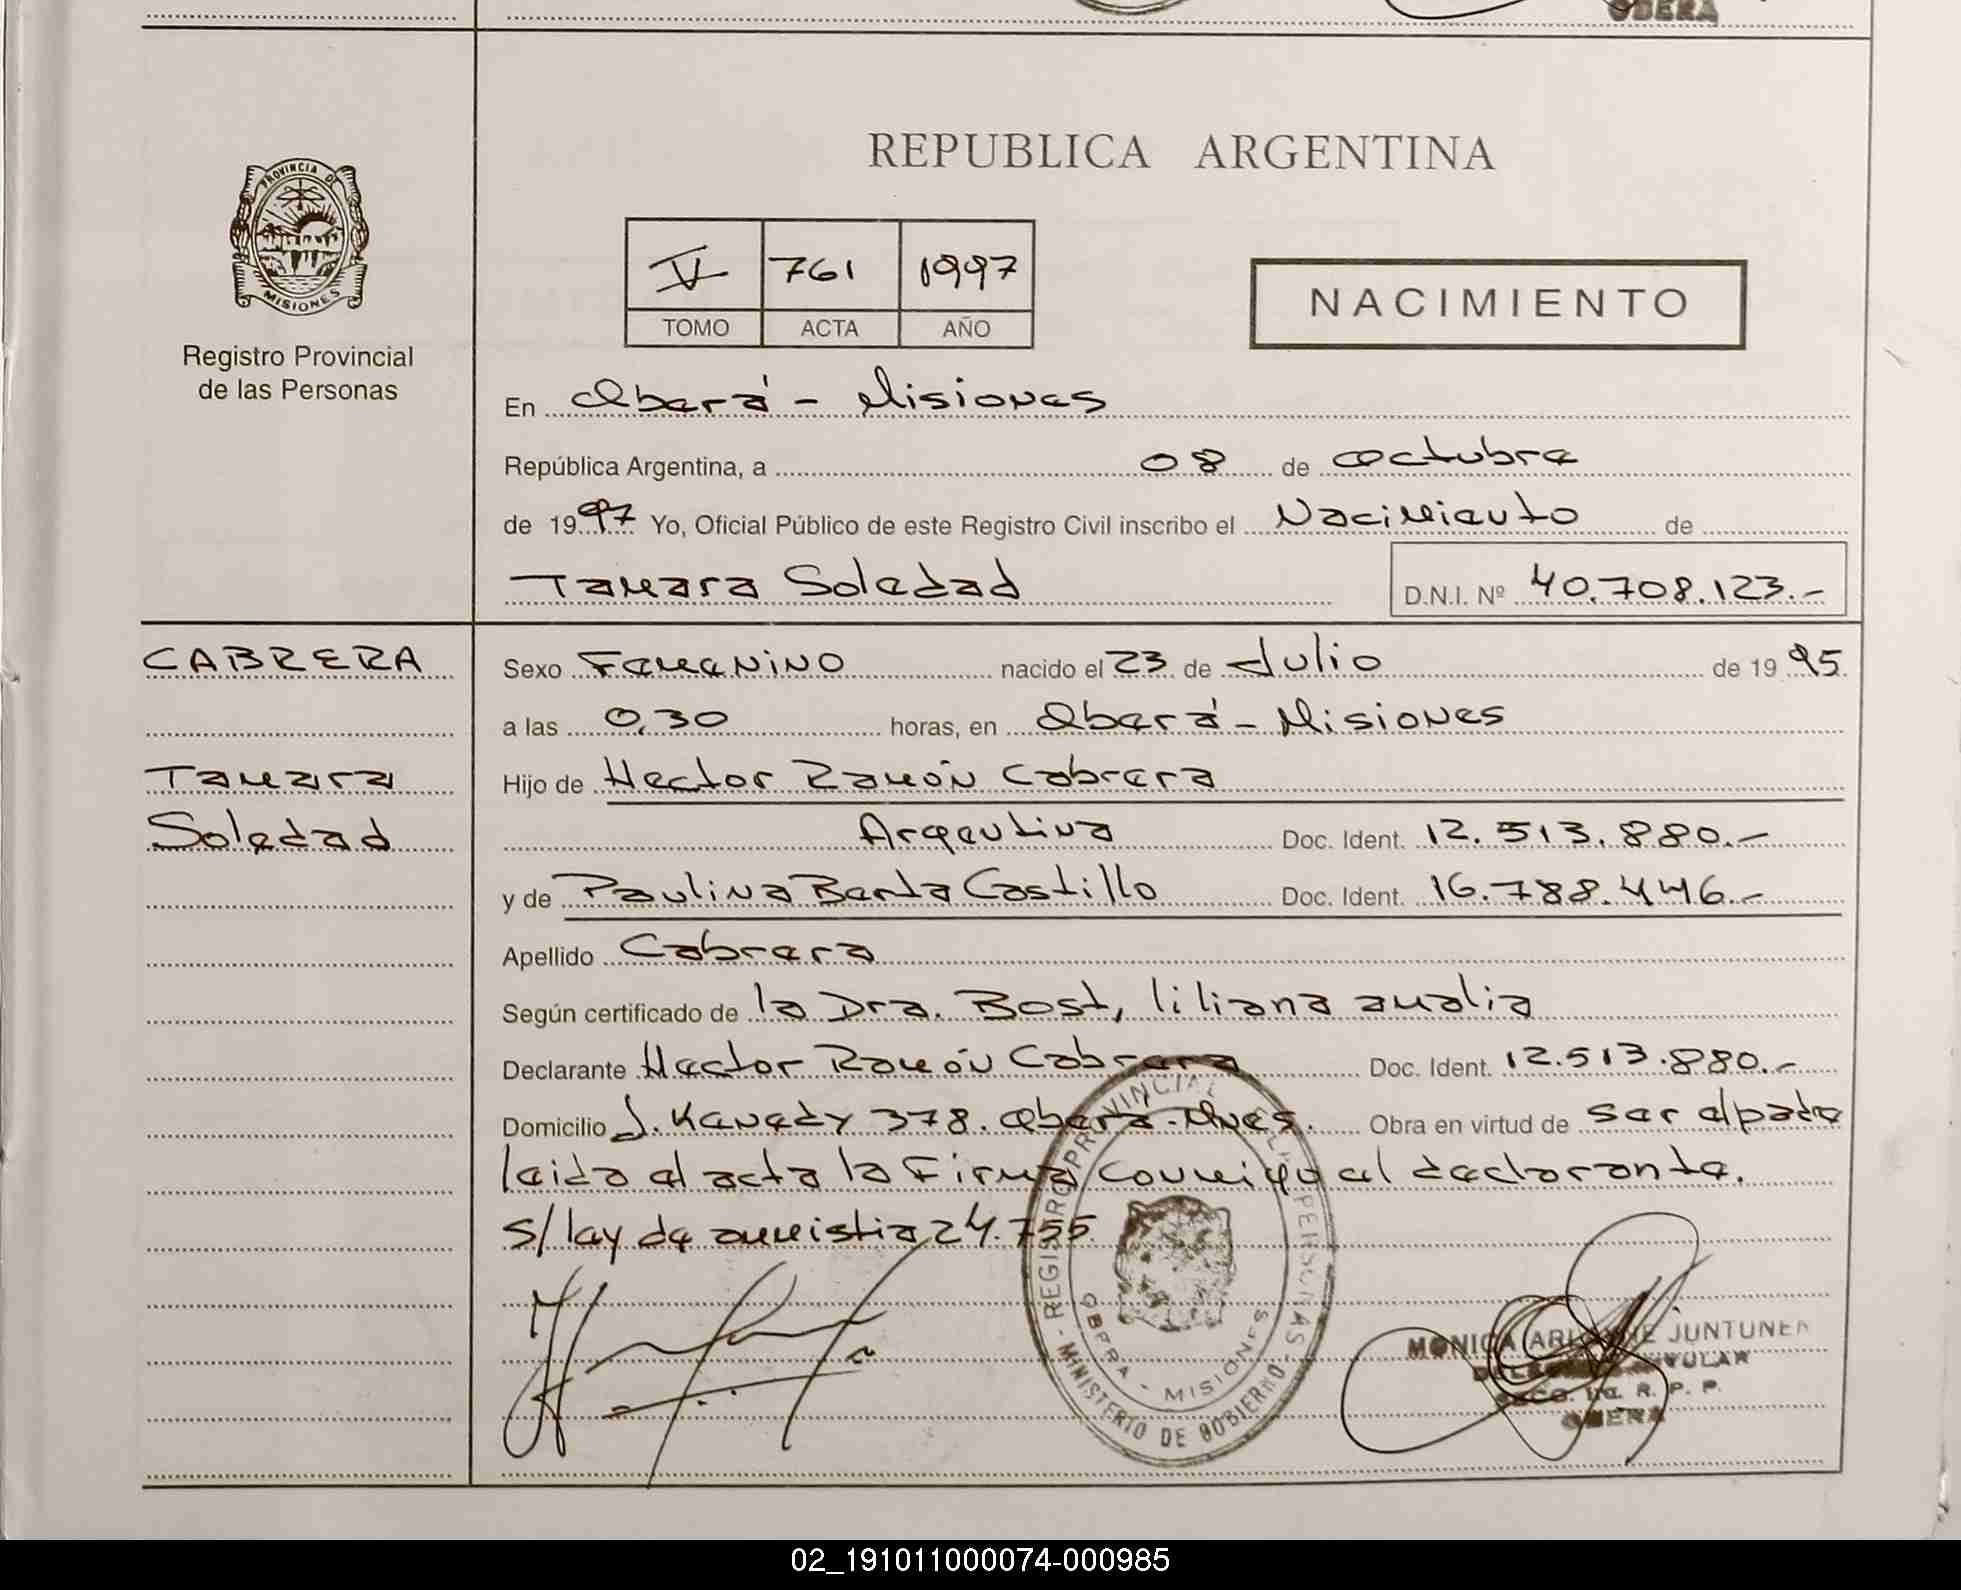 OBERA
REPUBLICA ARGENTINA
PROVINCIA DE
MISIONES
Registro Provincial
de las Personas
V 761 1997
TOMO ACTA AÑO
NACIMIENTO
En Oberá - Misiones
República Argentina, a 08 de octubre
de 1997 Yo, Oficial Público de este Registro Civil inscribo el Nacimiento de
Tamara Soledad D.N.I. Nº 40.708.123.-
CABRERA
Tamara
Soledad
Sexo Femenino nacido el 23 de Julio de 1995
a las 0,30 horas, en Oberá - Misiones
Hijo de Hector Ramón Cabrera
Argentina Doc. Ident. 12.513.880.-
y de Paulina Berta Castillo Doc. Ident. 16.788.446.-
Apellido Cabrera
Según certificado de la Dra. Bost, liliana amalia
Declarante Hector Ramón Cabrera Doc. Ident. 12.513.880.-
Domicilio J. Kenedy 378. Oberá - Mnes. Obra en virtud de ser el padre
leida el acta la Firma conmigo el declarante.
s/ ley de amnistia 24.755
REGISTRO PROVINCIAL DE LAS PERSONAS
MINISTERIO DE GOBIERNO
OBERA - MISIONES
MONICA JUNTUNEN
R. P. P.
OBERA
02_191011000074-000985